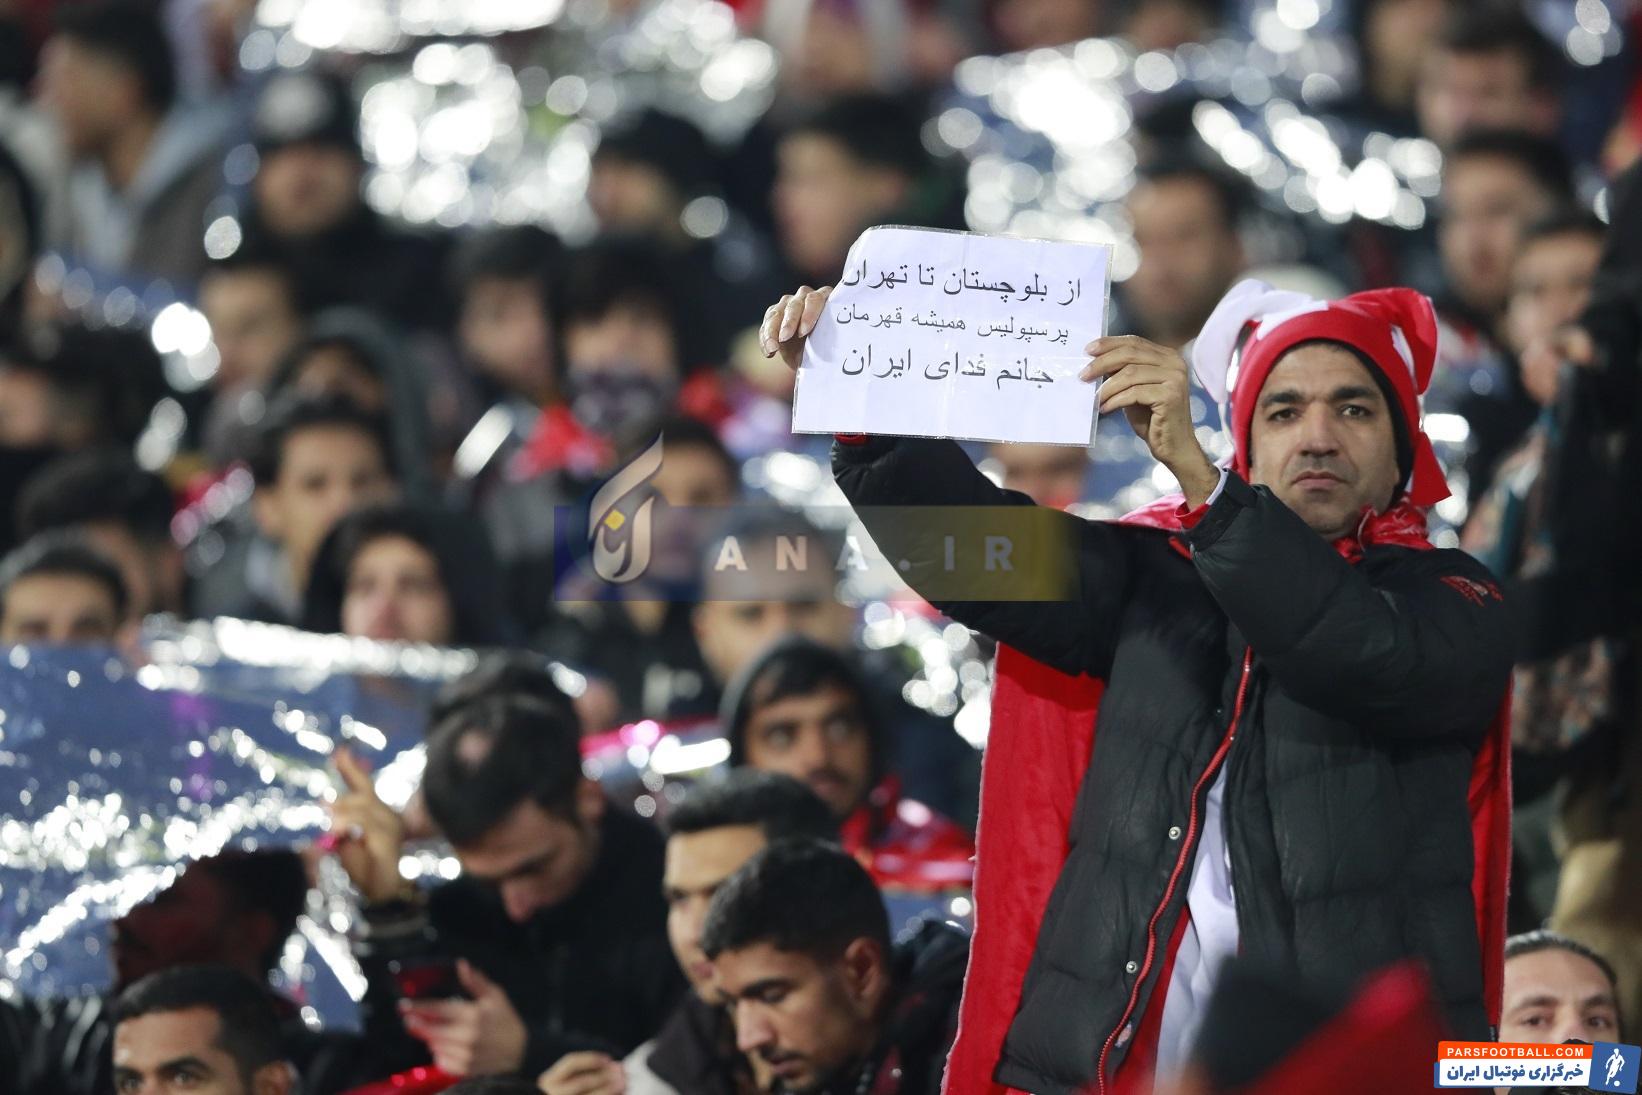 از بلوچستان تا تهران
پرسپولیس همیشه قهرمان
جانم فدای ایران
آنا
ANA.IR
PARSFOOTBALL.COM
خبرگزاری فوتبال ایران